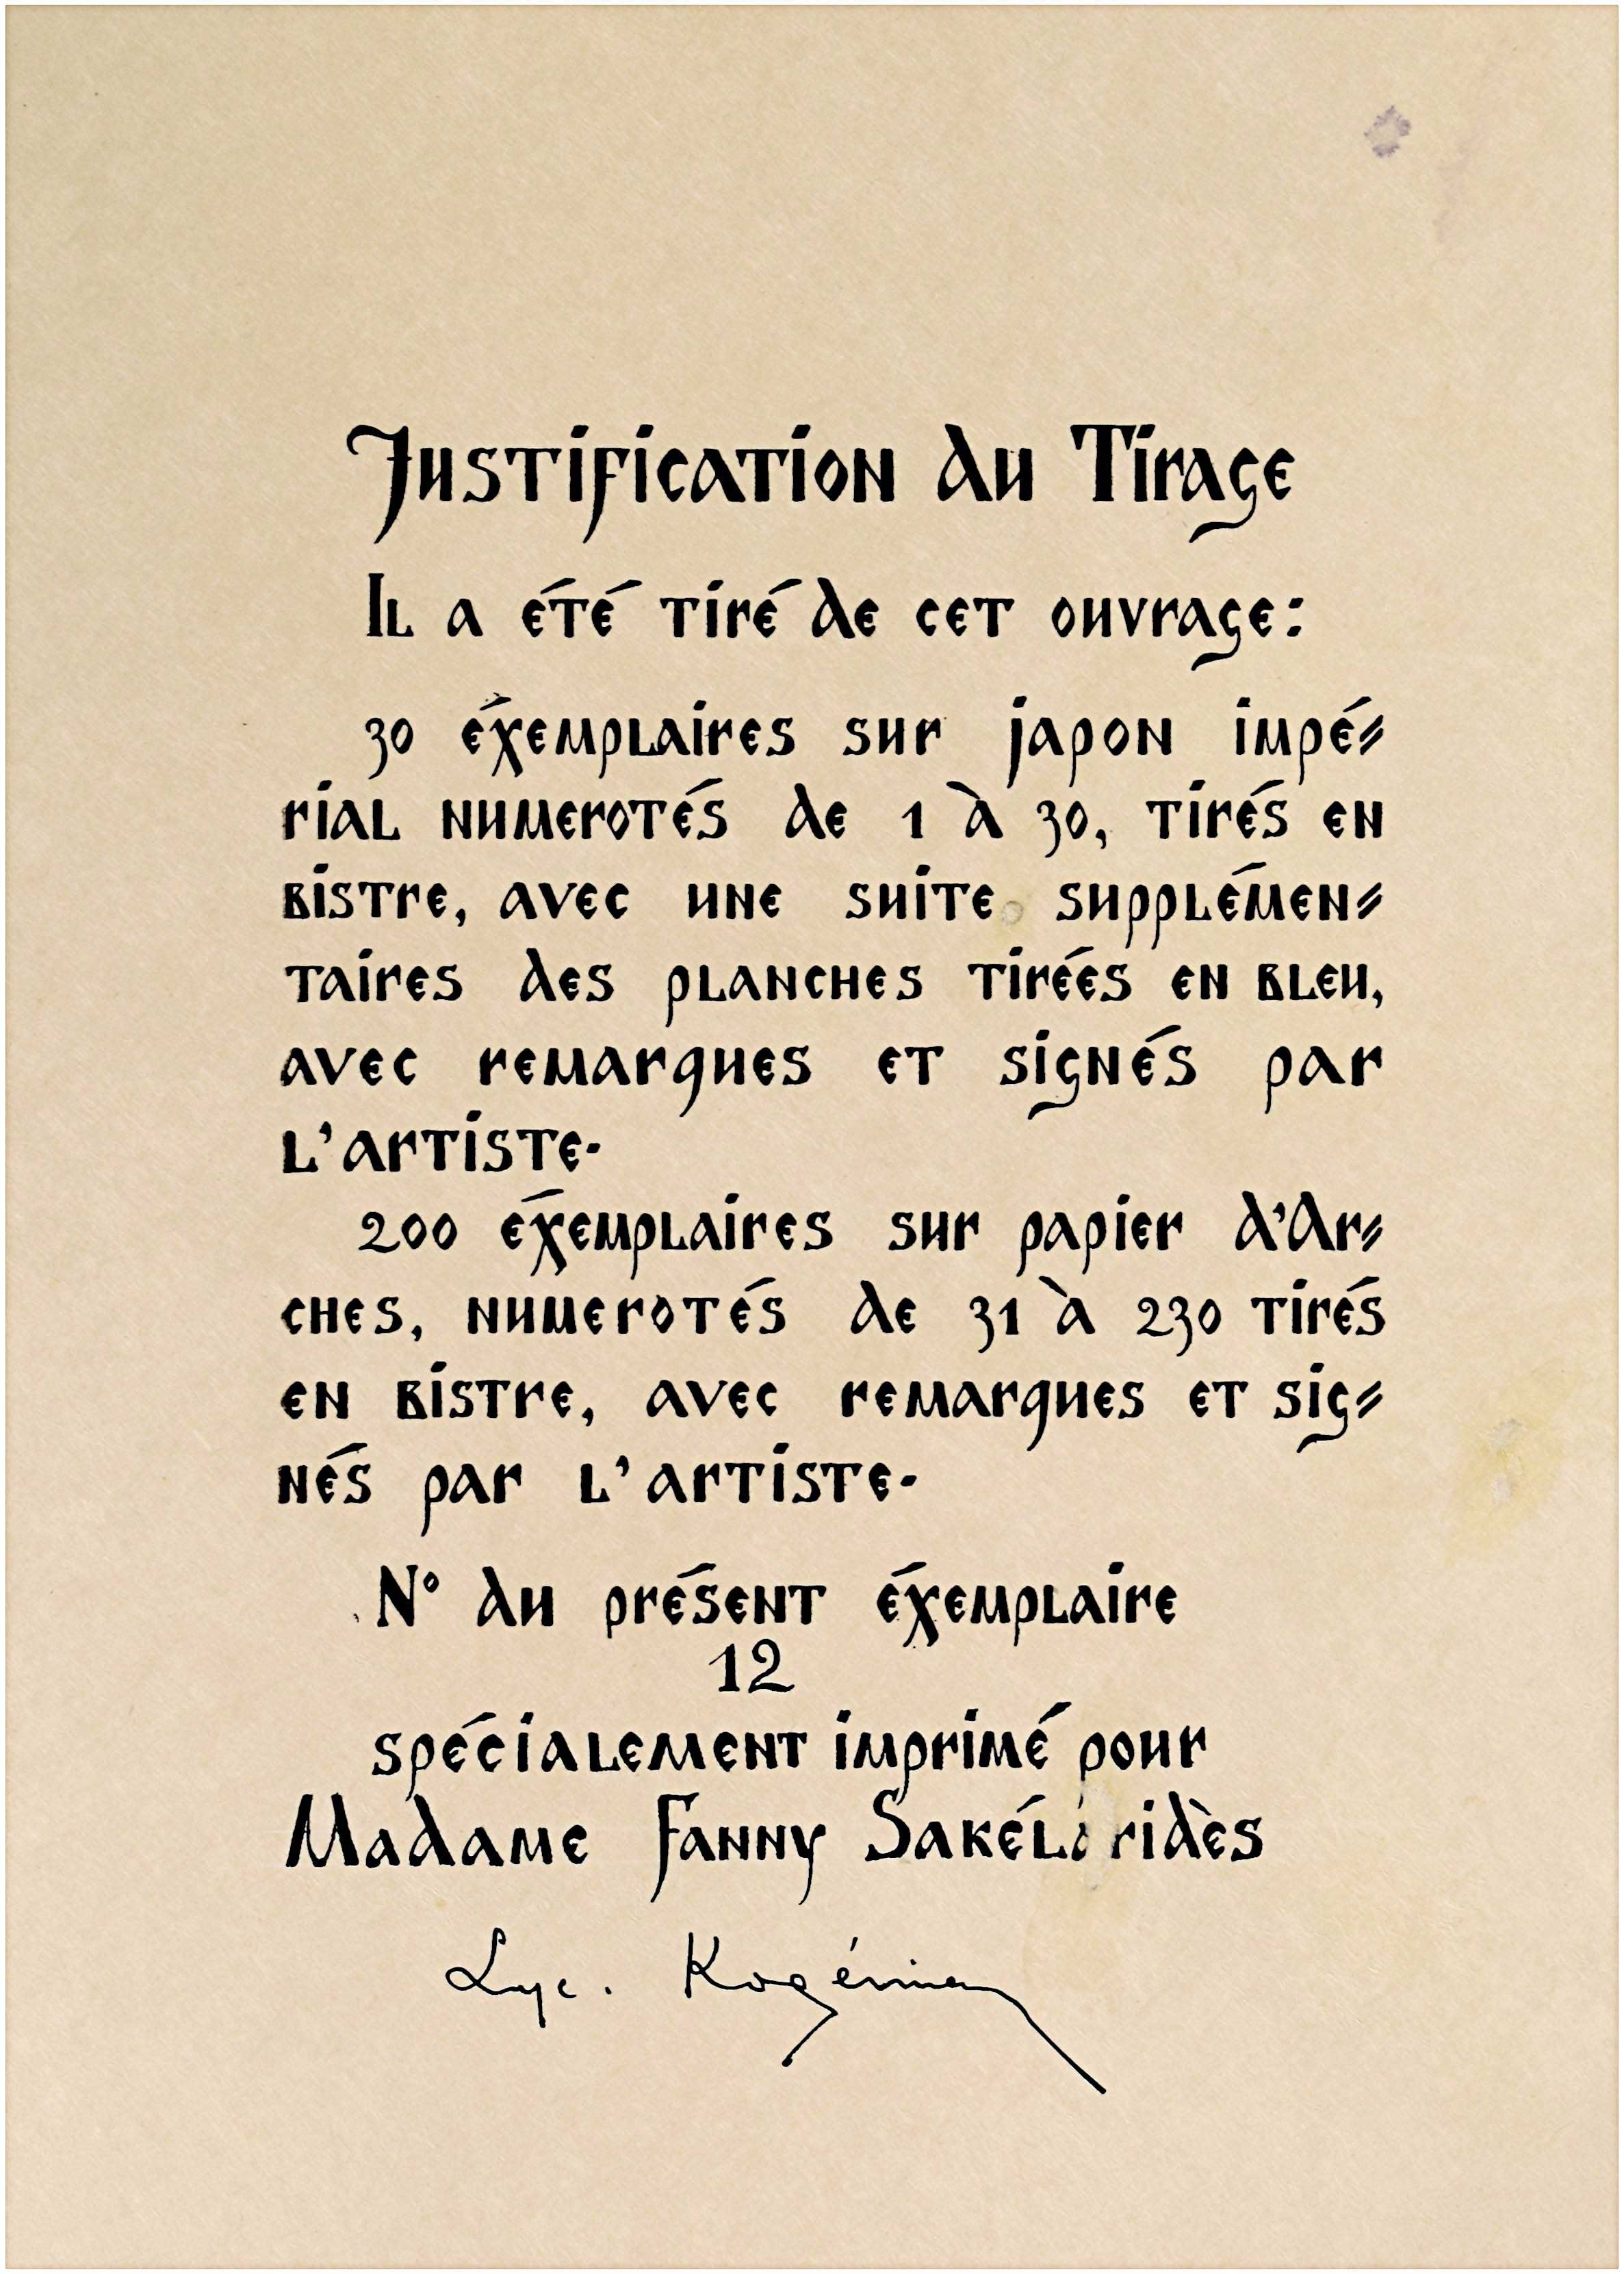 Justification du Tirage
Il a été tiré de cet ouvrage:
30 éxemplaires sur japon impé=
rial numerotés de 1 à 30, tirés en
bistre, avec une suite supplémen=
taires des planches tirées en bleu,
avec remarques et signés par
l'artiste.
200 éxemplaires sur papier d'Ar=
ches, numerotés de 31 à 230 tirés
en bistre, avec remarques et sig=
nés par l'artiste.
N° du présent éxemplaire
12
spécialement imprimé pour
Madame Fanny
Lyc. Kogévinas